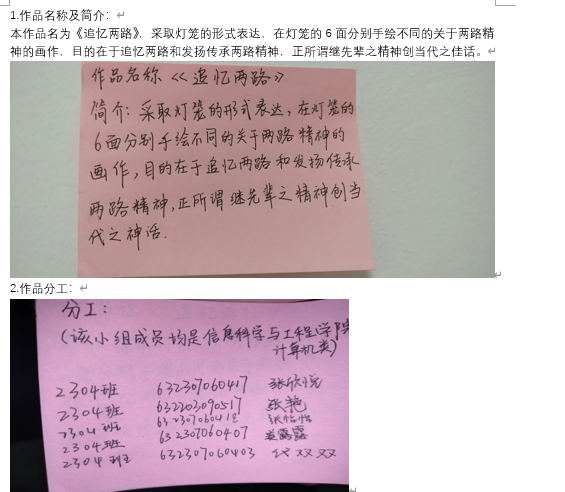 1.作品名称及简介：
本作品名为《追忆两路》，采取灯笼的形式表达，在灯笼的 6 面分别手绘不同的关于两路精
神的画作，目的在于追忆两路和发扬传承两路精神，正所谓继先辈之精神创当代之佳话。
作品名称《追忆两路》
简介：采取灯笼的形式表达，在灯笼的
6面分别手绘不同的关于两路精神的
画作，目的在于追忆两路和发扬传承
两路精神，正所谓继先辈之精神创当
代之神话.
2.作品分工：
分工：
（该小组成员均是信息科学与工程学院
计算机类）
2304班 632307060417 张欣悦
2304班 632203090517 张艳
2304班 张怡怡
2304班 632307060407 露露
2304班 632307060403 双双